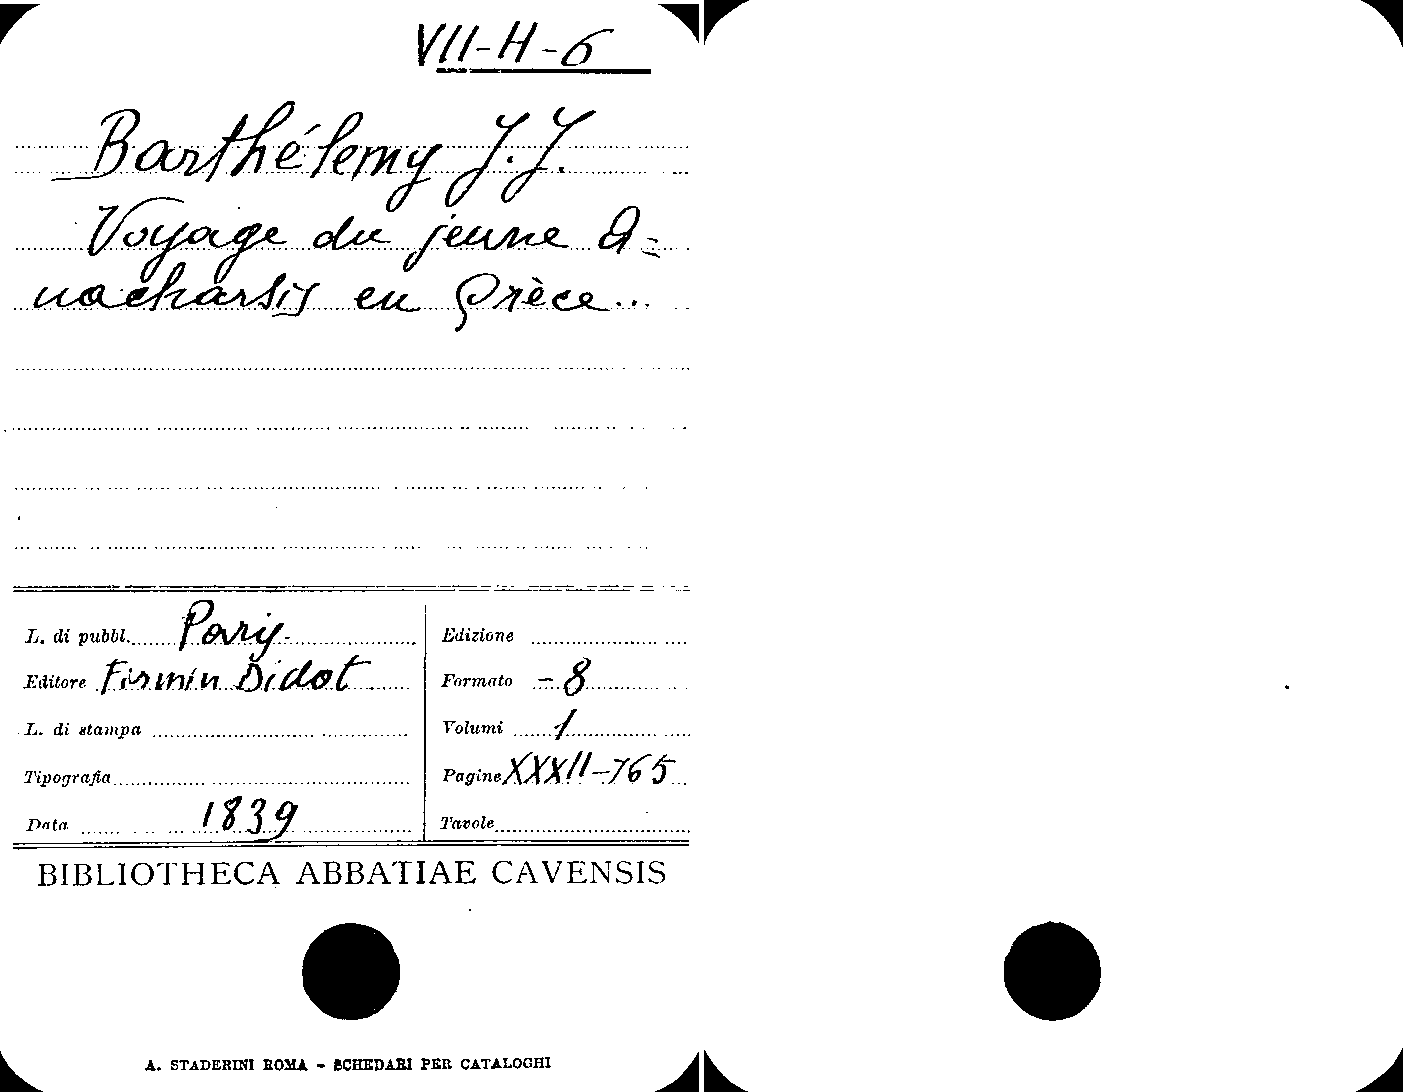 VII-H-6
Barthélemy J.J.
Voyage du jeune A=
nacharsis en Grèce...
L. di pubbl. Paris
Edizione
Editore Firmin Didot
Formato - 8
L. di stampa
Volumi 1
Tipografia
Pagine XXXII-765
Data 1839
Tavole
BIBLIOTHECA ABBATIAE CAVENSIS
A. STADERINI ROMA - SCHEDARI PER CATALOGHI